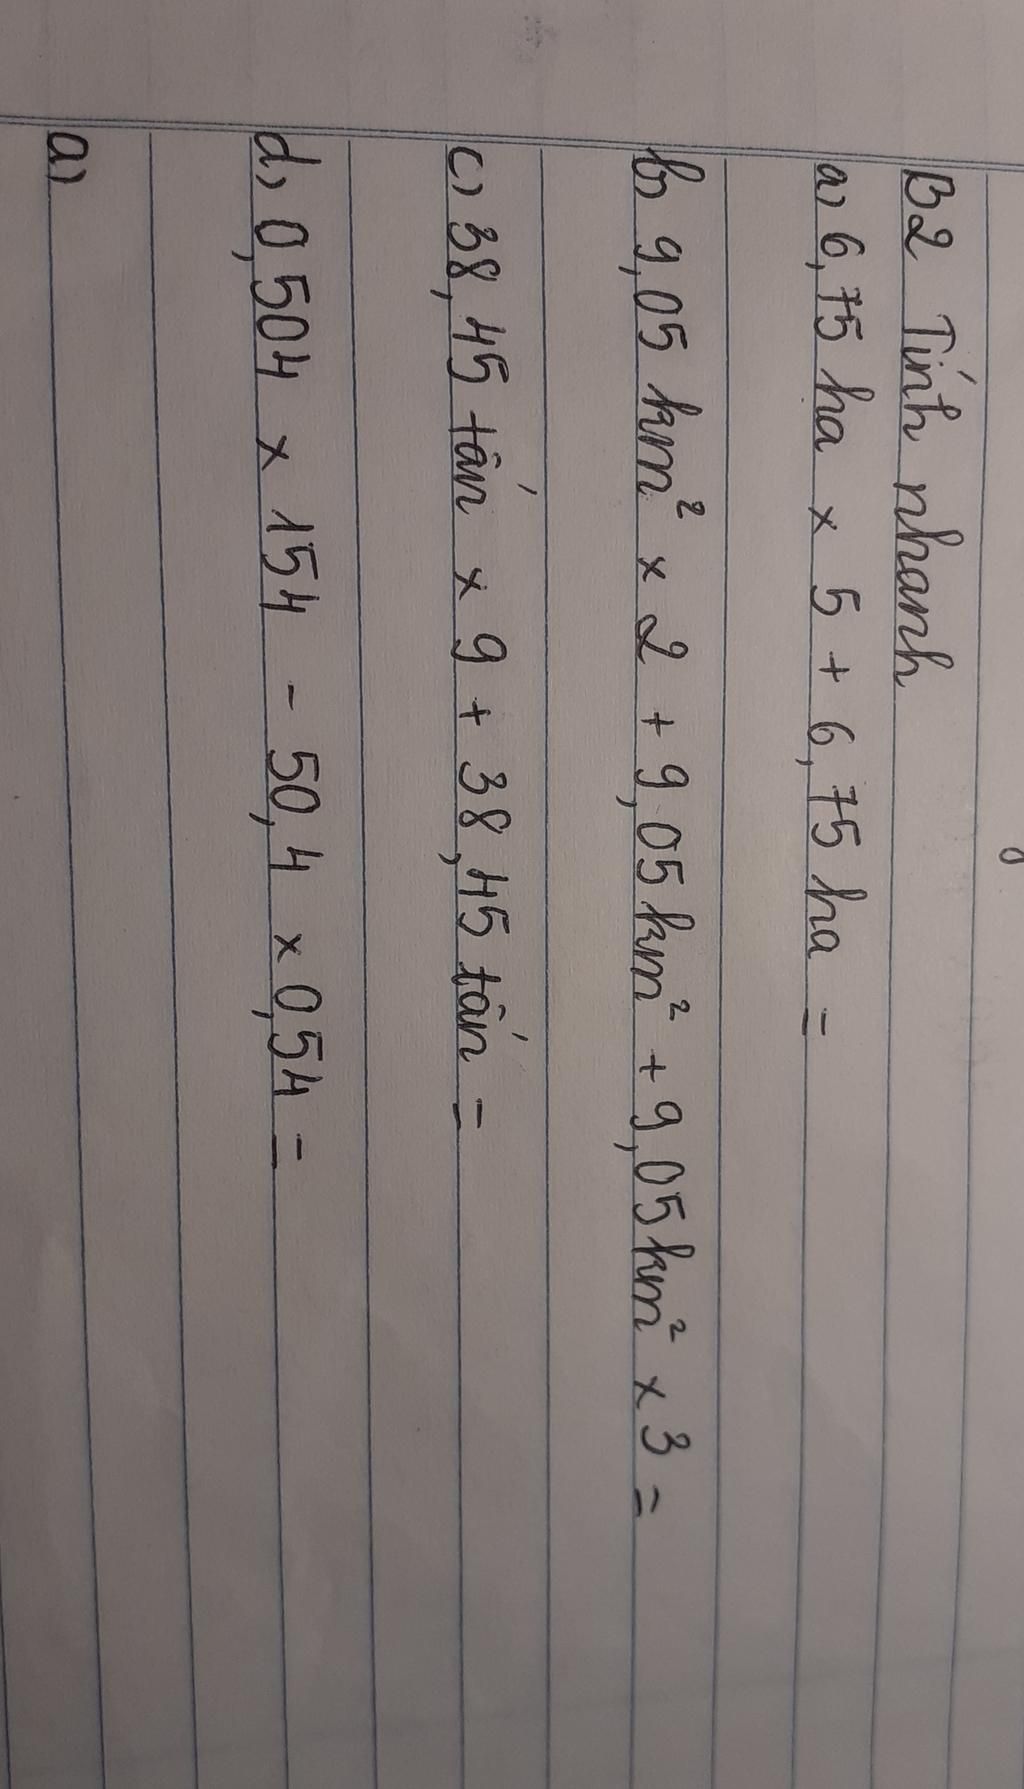 B2 Tính nhanh
a) 6,75 ha × 5 + 6,75 ha =
b) 9,05 km² × 2 + 9,05 km² + 9,05 km² × 3 =
c) 38,45 tấn × 9 + 38,45 tấn =
d) 0,504 × 154 - 50,4 × 0,54 =
a)